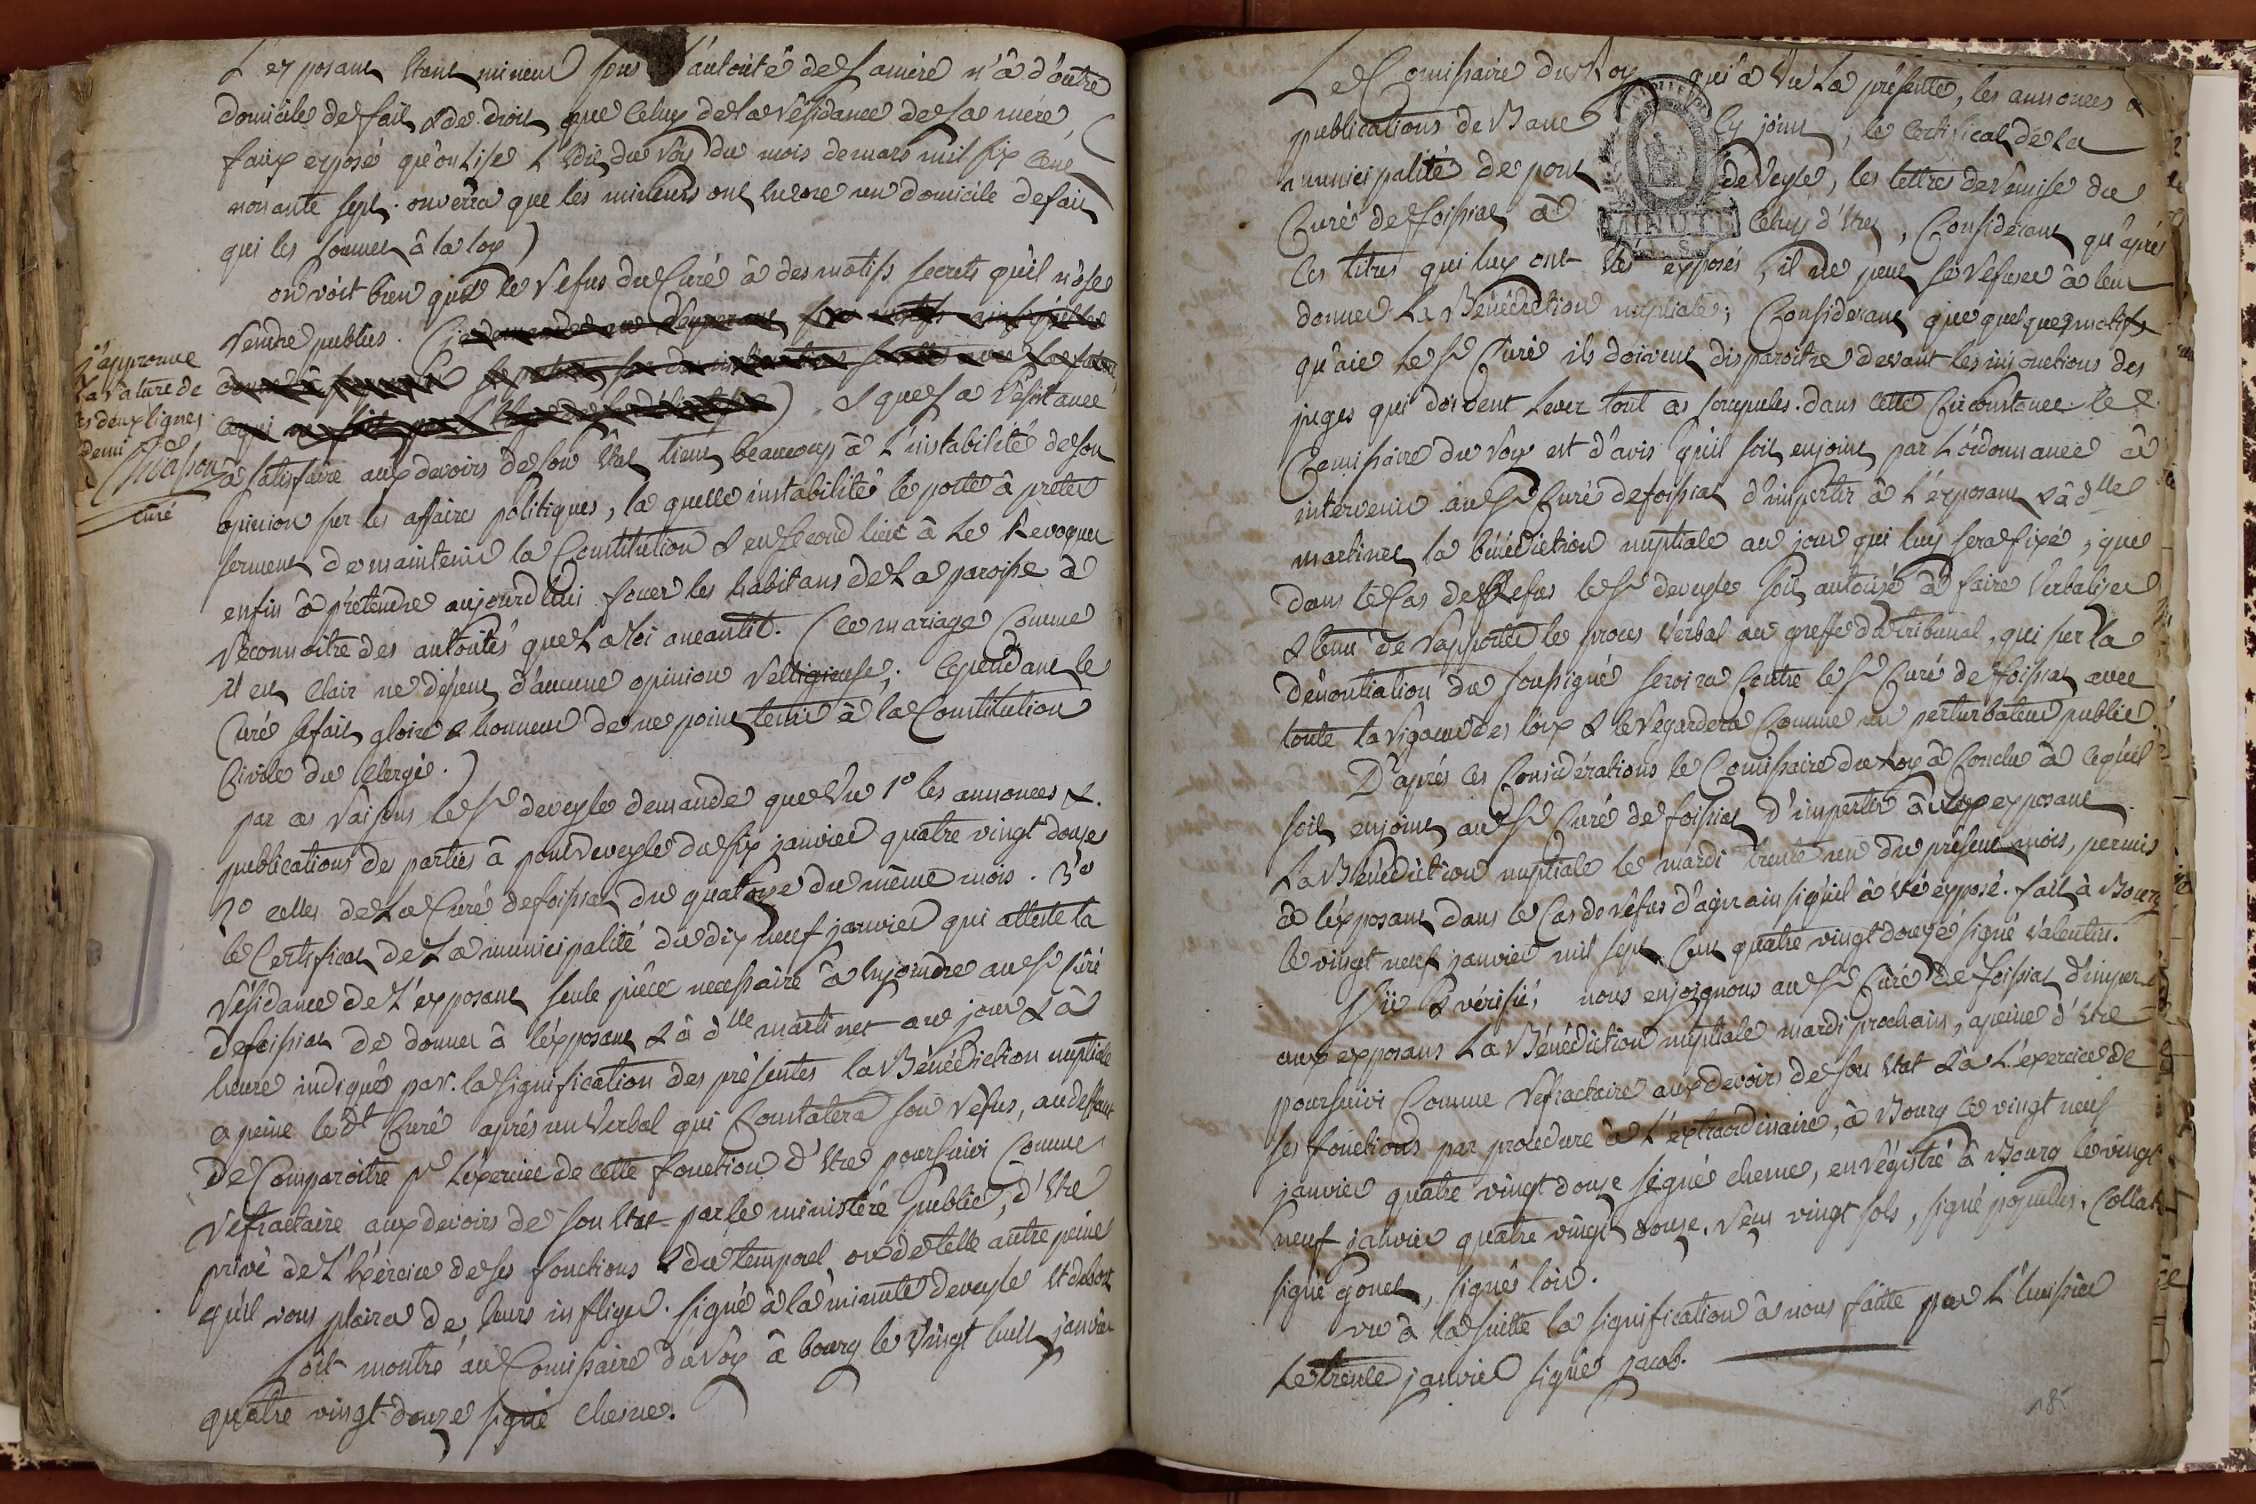 L'exposant etant mineur sous l'autorité de sa mère n'â d'autre
domicile de fait & de droit que celuy de la résidance de sa mère (
faux exposé qu'on lise l'édit du roy du mois de mars mil six cent
nonante sept. on verra que les mineurs ont encore un domicile de fait
qui les soumet à la loy )
on voit bien que le refus du Curé â des motifs secrets qu'il n'ose
rendre publics. (
) & que sa résistance
à satisfaire aux devoirs de son état tient beaucoup à l'instabilité de son
opinion sur les affaires politiques, la quelle instabilité le porte à prêter
serment de maintenir la Constitution & en second lieu à le Revoquer
enfin à prétendre aujourd'hui forcer les habitans de la paroisse à
réconnoitre des autorités que la loi aneantit. (le mariage comme
il est clair ne dépent d'aucune opinion relligieuse; cependant le
Curé se fait gloire & honneur de ne point tenir à la Constitution
Civile du Clergé.)
par ces raisons le Sr deveyle demande que vu 1° les annonces &
publications des parties à pontdeveyle du six janvier quatre vingt douze
2° celles de la Cure de foissiat du quatorze du même mois. 3°
le Certificat de la municipalité du dix neuf janvier qui atteste la
résidance de l'exposant seule pièce necessaire à enjoindre au Sr Curé
de foissiat de donner à l'exposant & à dlle martinet au jour & à
heure indiqués par la signification des présentes la Bénédiction nuptiale
a peine le dt Curé après un verbal qui constatera son refus, au deffaut
de Comparoitre pr l'exercice de cette fonction d'être poursuivi comme
réfractaire aux devoirs de son état par le ministère public, d'être
privé de l'éxercice de ses fonctions & du temporel ou de telle autre peine
qu'il vous plaira de leurs infliger. signé à la minute deveyle et
soit montré au Comissaire du roy à bourg le vingt huit janvier
quatre vingt douze signé chesne.
j'approuve
la rature de
ces deux lignes
& demi
Chapon
curé
Le Comissaire du Roy qui â vû la présente, les annonces &
publications de Banc cy joint, le certificat de la
municipalité de pont de veyle, les lettres de remise du
Curé de foissiat à celuy d'etrez, Considérant qu'après
les titres qui luy ont été exposés, il ne peut se refuser à leur
donner la Bénédiction nuptiale; Considerant que quelques motifs
qu'aie le Sr Curé ils doivent disparoitre devant les injonctions des
juges qui doivent lever tout ces scrupules. dans cette circonstance le
Comissaire du roy est d'avis qu'il soit enjoint par l'ordonnance à
intervenir au Sr Curé de foissiat d'impertir à l'exposant & à dlle
martinet la bénédiction nuptiale au jour qui luy sera fixé, que
dans le cas de Refus le Sr deveyle soit autorisé à faire verbaliser
& tenu de rapporter le procès verbal au greffe du tribunal, qui sur la
dénontiation du soussigné servira Contre le Sr Curé de foissiat avec
toute la rigueur des loix & le regardera comme un perturbateur public.
D'après ces Considérations le Comissaire du roy à conclu à ce qu'il
soit enjoint au Sr Curé de foissiat d'impertir aux exposant
la Bénédiction nuptiale le mardi trente un du présent mois, permis
à l'exposant dans le cas de refus d'agir ainsi qu'il à été exposé. fait à Bourg
le vingt neuf janvier mil sept cent quatre vingt douze signé valentin.
Vû & vérifié, nous enjoignons au Sr Curé de foissiat d'imper
aux exposans la Bénédiction nuptiale mardi prochain, a peine d'être
poursuivi comme réfractaire aux devoirs de son état & à l'exercice de
ses fonctions par procedure à l'extraordinaire, à Bourg le vingt neuf
janvier quatre vingt douze signé chesne, enrégistré à Bourg le vingt
neuf janvier quatre vingt douze. reçu vingt sols, signé Collat
signé gonet, signés loir.
vu à la suitte la signification à nous faitte par l'huissier
Le trente janvier signé jacob.
18